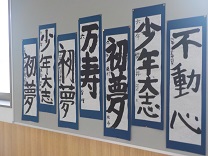 不動心
少年大志
初夢
万寿
初夢
少年大志
初夢